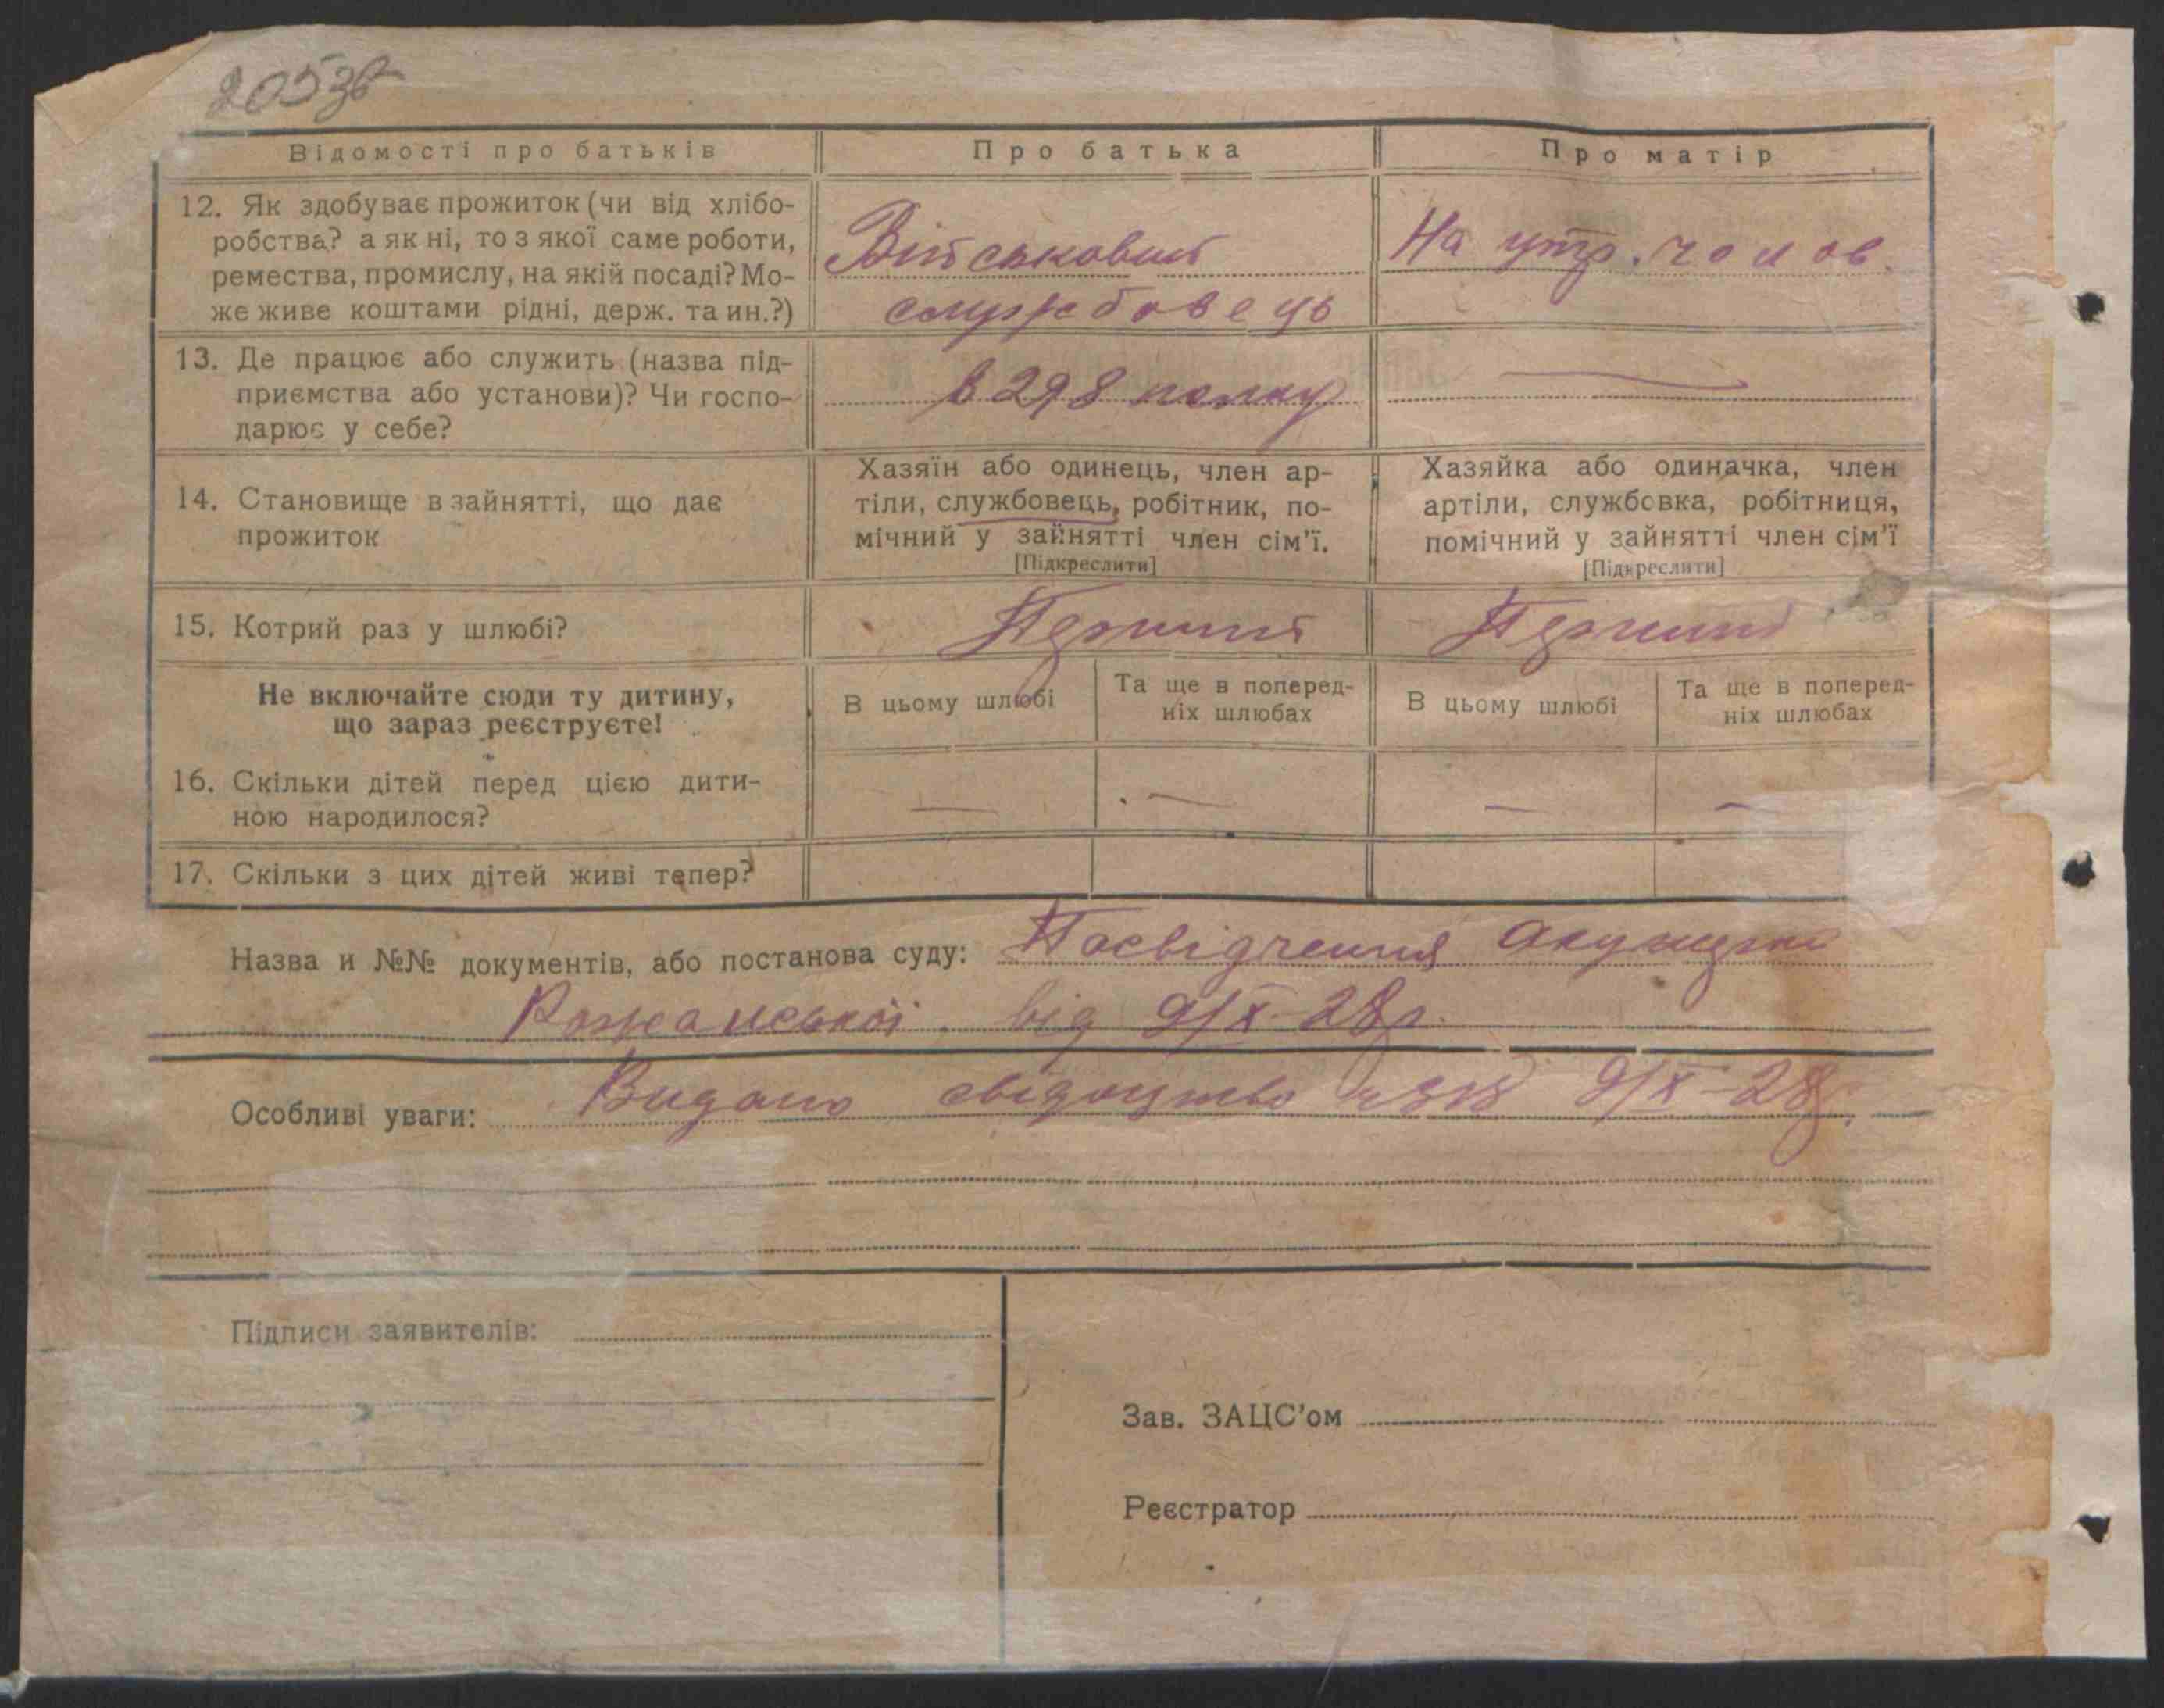 205зв
Відомості про батьків
Про батька
Про матір
12. Як здобуває прожиток (чи від хлібо-
робства? а як ні, то з якої саме роботи,
ремества, промислу, на якій посаді? Мо-
же живе коштами рідні, держ. та ин.?)
Військовий
службовець
На утр. чолов.
13. Де працює або служить (назва під-
приємства або установи)? Чи госпо-
дарює у себе?
в 298 полку
14. Становище в зайнятті, що дає
прожиток
Хазяїн або одинець, член ар-
тіли, службовець, робітник, по-
мічний у зайнятті член сім'ї.
[Підкреслити]
Хазяйка або одиначка, член
артіли, службовка, робітниця,
помічний у зайнятті член сім'ї
[Підкреслити]
15. Котрий раз у шлюбі?
Перший
Перший
Не включайте сюди ту дитину,
що зараз реєструєте!
В цьому шлюбі
Та ще в поперед-
ніх шлюбах
В цьому шлюбі
Та ще в поперед-
ніх шлюбах
16. Скільки дітей перед цією дити-
ною народилося?
17. Скільки з цих дітей живі тепер?
Назва и №№ документів, або постанова суду: Посвідчення акушерки
Рожанської від 9/X-28р.
Особливі уваги: Видано свідоцтво 9/X-28р.
Підписи заявителів:
Зав. ЗАЦС'ом
Реєстратор